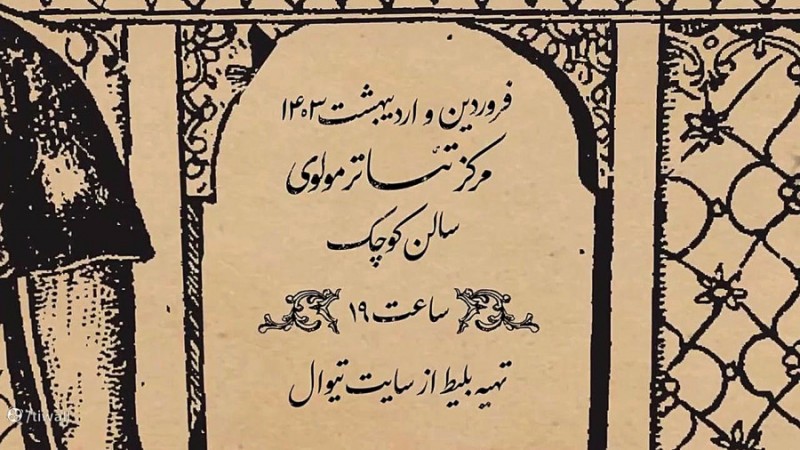 فروردین و اردیبهشت ۱۴۰۳
مرکز تئاتر مولوی
سالن کوچک
ساعت ۱۹
تهیه بلیط از سایت تیوال
/tiwall